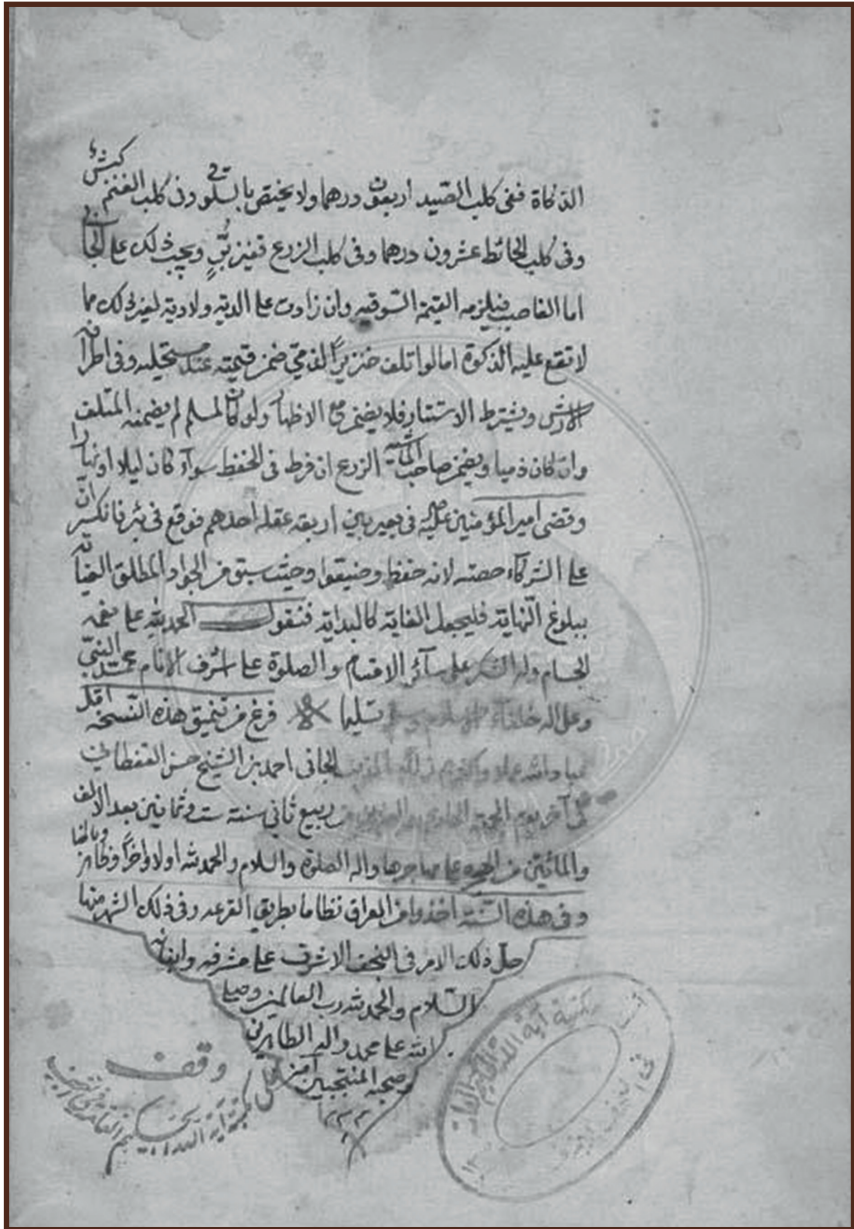 الذكاة ففى كلب الصيد اربعون درهما ولا يختص بالسلوقى دون كلب الغنم كبش
وفى كلب الحائط عشرون درهما وفى كلب الزرع قفيز بُرٍّ ويجب ذلك على الجانى
اما الغاصب فيلزمه القيمة السوقيه وان زادت على الدية ولا دية لغير ذلك مما
لا تقع عليه الذكوة اما لو اتلف خنزيراً لذمى ضمن قيمته عند مستحليه وفى اطرافه
الارش ويشترط الاستتار فلا يضمن مع الاظهار ولو كان لمسلم لم يضمنه المتلف
وان كان ذميا ويضمن صاحب الماشية الزرع ان فرط فى الحفظ سوآء كان ليلا او نهارا
وقضى امير المؤمنين عليه فى بعير بين اربعة عقله احدهم فوقع فى بئر فانكسر انّ
على الشركآء حصته لانه حفظ وضيعوا وحيث سبق من الجواد المطلق العناية
ببلوغ النهاية فليجعل الغاية كالبداية فنقول الحمد لله على نعمه
الجسام وله الشكر على سآئر الاقسام والصلوة على اشرف الانام محمد النبي
وعلى اله تسليما فرغ من تنميق هذه النسخة اقل
الجانى احمد بن الشيخ حسن القفطانى
فى آخر ربيع ثانى سنة ست وثمانين بعد الالف
والمائتين من الهجرة على مهاجرها واله الصلوة والسلام والحمد لله اولا واخرا وظاهرا وباطنا
وفى هذه السنة اخذوا من العراق نظاما بطريق القرعه وفى ذلك الشهر منها
حل ذلك الامر فى النجف الاشرف على مشرفه
السلام والحمد لله رب العالمين وصلى
الله على محمد واله الطاهرين
وصحبه المنتجبين آمين
وقف
مكتبة آية الله الحكيم العامة
مكتبة آية الله الحكيم العامة